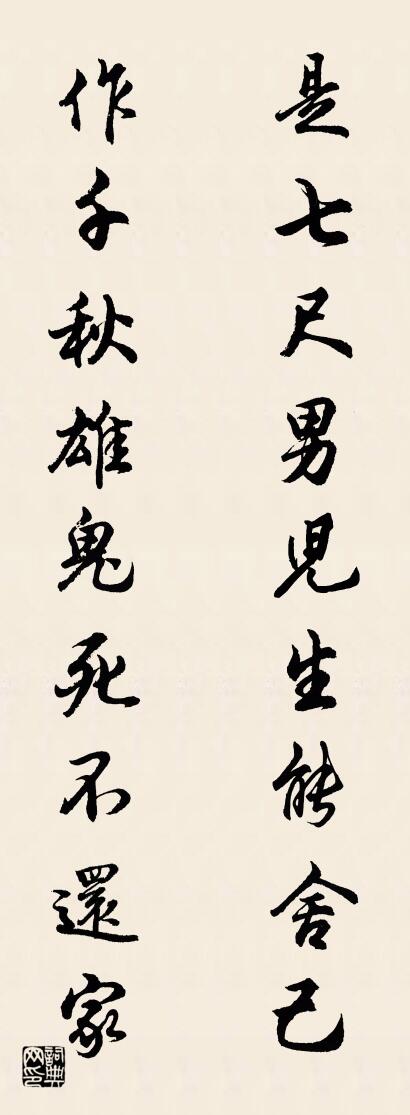 是七尺男児生能舍己
作千秋雄鬼死不還家
詞典網印